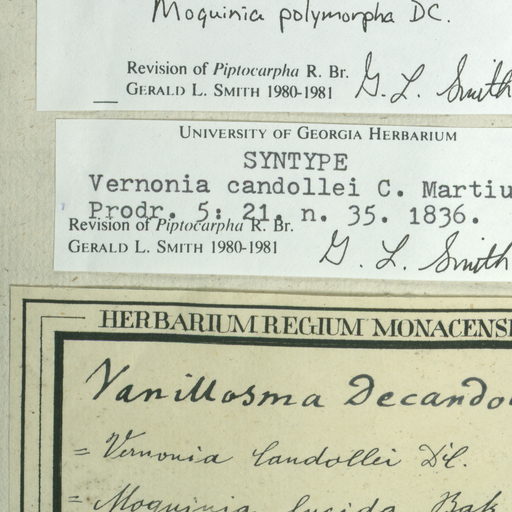 Moquinia polymorpha DC.
Revision of Piptocarpha R. Br.
GERALD L. SMITH 1980-1981 G. L. Smith
UNIVERSITY OF GEORGIA HERBARIUM
SYNTYPE
Vernonia candollei C. Martiu
Prodr. 5: 21. n. 35. 1836.
Revision of Piptocarpha R. Br.
GERALD L. SMITH 1980-1981 G. L. Smith
HERBARIUM REGIUM MONACENS
Vanillosma Decando
= Vernonia Candollei DC.
= Moquinia lucida Bak